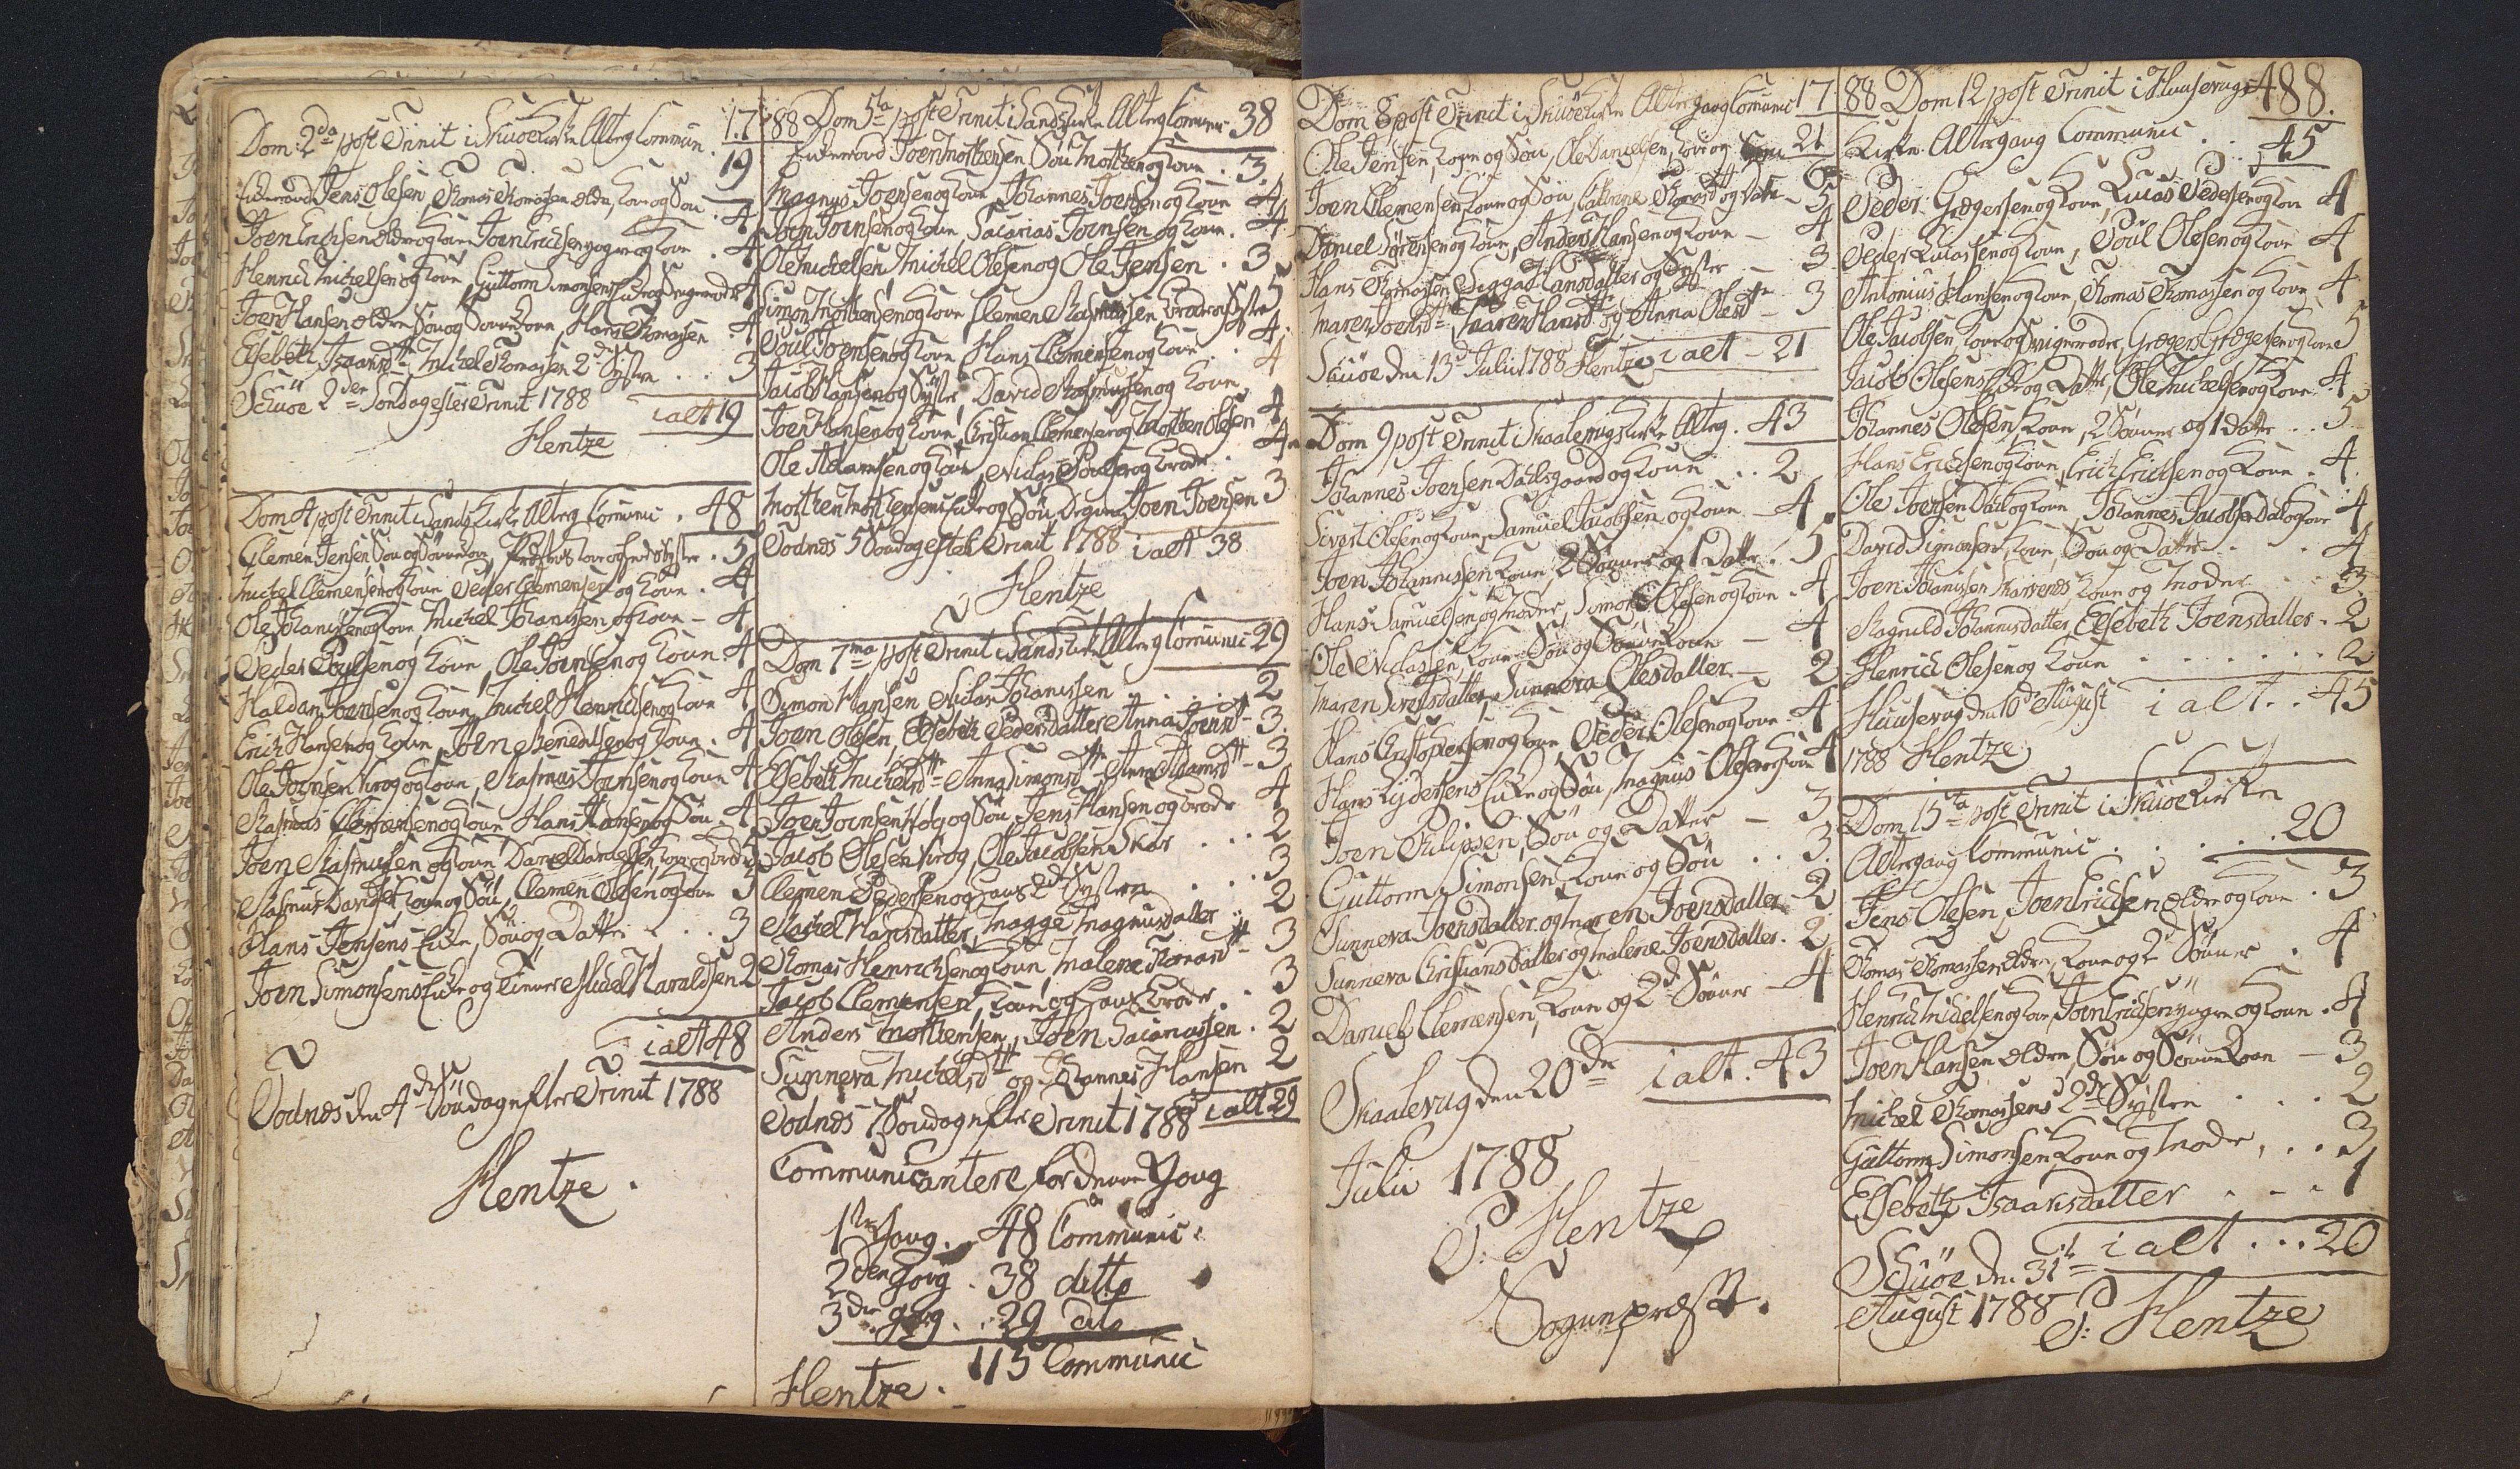 Dom: 2da post Trinit i Skuöe Kirke Alterg Commun. 17
19
Enkemand Jens Olesen, Thomas Thomasen ældre, Kone og Søn . 4
Joen Erichsen ældre og Kone Joen Erichsen yngre og Kone . 4
Henrich Michelsen og Kone Guttorm Simonsens Enke og Svigermoder 4
Joen Hansen ældre Søn og Sønnekone, Hans Thomasen . 4
Elsebeth Isaachsd Michel Thomassen 2de Systre . . 3
Schüöe 2den Søndag efter Trinit 1788 ialt 19
Hentze
Dom 4 post Trinit i Sands Kirke Alterg Comunic . 48
Clemen Jensen Søn og Sønnekone, Kone og Syster . 5
Michel Clemensen og Kone Peder Clemensen og Kone . 4
Ole Johanissen og Kone, Michel Johanissen og Kone - 4
Peder Poulsen og Kone, Ole Joensen og Kone . 4
Haldan Joensen og Kone, Michel Henrichsen og Kone 4
Erich Hansen og Kone, Joen Benedictsen og Kone . 4
Ole Joensen Krog og Kone, Rasmus Joensen og Kone 4
Rasmus Clemensen og Kone Hans Hansen og Søn . 4
Joen Rasmusen og Kone Daniel Danielsen, Kone og Broder 5
Rasmus Davidsen Kone og Søn, Clemen Olesen og Kone 5
Hans Jensens Enke, Søn og Datter . . 3
Joen Simonsens Enke og Tiener Michel Haraldsen 2
ialt 48
Todnes den 4de Søndag efter Trinit 1788
Hentze .
88 Dom 5ta post Trinit i Sands Kirke Alterg Comun 38
Enkemand Joen Mortensen Søn Morten og Kone . 3
Magnus Joensen og Kone Johannes Joensen og Kone 4
Joen Joensen og Kone, Sacarias Joensen og Kone . 4
Ole Michelsen Michel Olesen og Ole Jensen . 3
Simon Mortensen og Kone Clemen Rasmussen, Broder og Syster 5
Poul Joensen og Kone Hans Clemensen og Kone . 4
Jacob Hansen og Syster, David Rasmusen og Kone 4
Joen Hansen og Kone, Christian Clemensen og Morten Olesen 4
Ole Adamsen og Kone, Niclas Poulsen og Broder . 4
Morten Mortensens Enke og Søn Degnen Joen Joensen 3
Todnes 5 Søndag efter Trinit 1788 ialt 38
Hentze
Dom 7ma post Trinit i Sands Kirke Alterg Comunic 29
Symon Hansen Niclas Johanissen . . . . 2
Joen Olesen, Elsebeth Pedersdatter Anna Joensd - 3
Elsebeth Michelsd Anna Simonsd Anna Adamsd - 3
Joen Joensen Høg og Søn, Jens Hansen og Broder 4
Jacob Olesen Krog, Ole Jacobsen Skor . . 2
Clemen Pedersen og hans 2de Systre . . . 3
Rachel Hansdatter, Magge Magnusdatter . . 2
Thomas Henrichsen og Kone, Malene Thomasd - 3
Jacob Clemensen, Kone og hans Broder . . 3
Anders Mortensen, Joen Sacariassen . 2
Sunneva Michelsd og Johannes Hansen 2
Todnes 7 Søndag efter Trinit 1788 ialt 29
Communicantere for denne Gang
1ste gang . . 48 Communic .
2den gang . 38 ditto
3de gang . . 29 dito
115 Communic
Hentze .
Dom 8 post Trinit i Skuöe Kirke Altergang Comunic 17
21
Ole Jensen, Kone og Søn, Ole Danielsen, Kone og 6
Joen Clemensen, Kone og Søn, Catrine Thomasd og Datter - 5
Daniel Sørensen og Kone, Anders Hansen og Kone - 4
Hans Thomassen Sigga Hansdatter og Syster - 3
Maren Joensd Maren Hansd og Anna Olesd - 3
Skuöe den 13de Julii 1788 Hentze ialt - 21
Dom 9 post Trinit i Skaalevigs Kirke Alterg . 43
Johannes Joensen Dahlsgaard og Kone . . 2
Sivert Olesen og Kone, Samuel Jacobsen og Kone - 4
Joen Johannissen Kone, 2 Sønner og 1 Datter . 5
Hans Samuelsen og Moder, Simon Olesen og Kone . 4
Ole Niclassen, Kone Søn og Sønnekone - 4
Maren Sivertsdatter, Sunneva Olesdatter . - 2
Hans Christophersen og Kone, Peder Olesen og Kone . 4
Hans Lydersens Enke og Søn, Magnus Olesen og Kone 4
Joen Philipsen, Søn og Datter - 3
Guttorm Simonsen, Kone og Søn . . 3
Sunneva Joensdatter og Maren Joensdatter . 2
Sunneva Christiansdatter og Malene Joensdatter . 2
Daniel Clemensen, Kone og 2de Sønner - 4
Skaalevig den 20de ialt . 43
Julii 1788
P: Hentze
Sognepræst .
88 Dom 12 post Trinit i Huusevigs 488.
Kirke Altergang Communic . . 45
Peder Gregersen og Kone, Lucas Pedersen og Kone 4
Peder Lucassen og Kone, Poul Olesen og Kone 4
Antonius Hansen og Kone, Thomas Thomassen og Kone 4
Ole Jacobsen, Kone og Svigermoder, Gregers Gregersen og Kone 5
Jacob Olesens Enke og Datter, Ole Michelsen og Kone . 4
Johannes Olesen, Kone, 2 Sønner og 1 Datter . . 5
Hans Erichsen og Kone, Erich Erichsen og Kone . 4
Ole Joensen Dahl og Kone, Johannes Jacobsen Dahl og Kone 4
David Simonsen, Kone, Søn og Datter . . . 4
Joen Johanissen Kone og Moder . . 3
Ragnild Johannisdatter, Elsebeth Joensdatter . 2
Henrich Olesen og Kone . . . . . . . 2
Huusevig den 10de August ialt . . 45
1788 Hentze
Dom 15ta post Trinit i Skuöe Kirken
Altergang Communic . . . . . 20
Jens Olesen, Joen Erichsen ældre og Kone . 3
Thomas Thomassen ældre, Kone og 2de Sønner . 4
Henrich Michelsen og Kone, Joen Erichsen yngre og Kone . 4
Joen Hansen ældre, Søn og Sønne Kone - 3
Michel Thomassens 2de Systre . . . 2
Guttorm Simonsen, Kone og Moder , . . 3
Elsebeth Isaachsdatter . - . 1
Schüöe den 31te ialt . . . 20
August 1788 P: Hentze